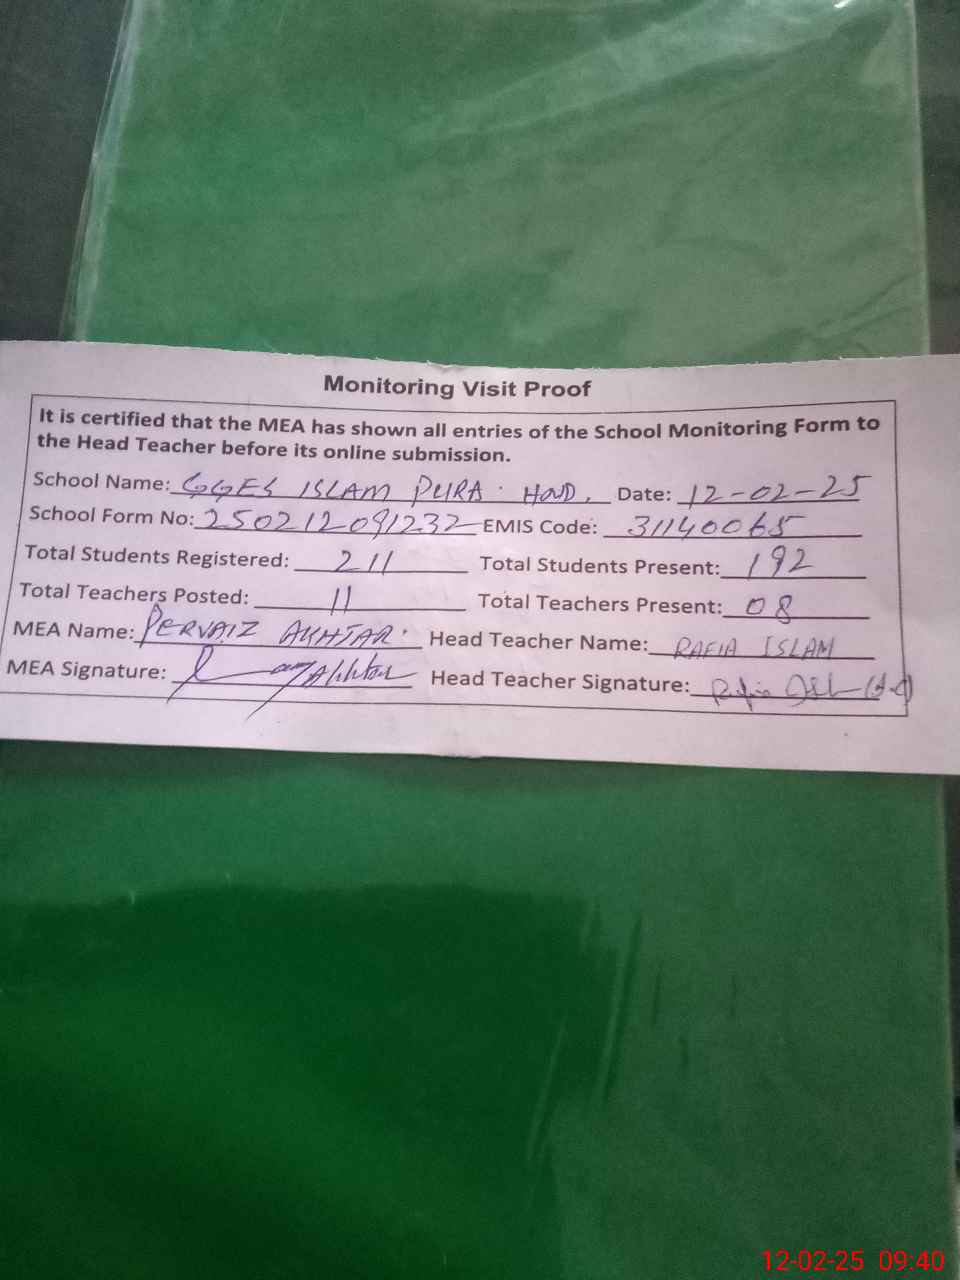 Monitoring Visit Proof
It is certified that the MEA has shown all entries of the School Monitoring Form to
the Head Teacher before its online submission.
School Name: GGES ISLAM PURA HOUD. Date: 12-02-25
School Form No: 250212091232 EMIS Code: 31140065
Total Students Registered: 211 Total Students Present: 192
Total Teachers Posted: 11 Total Teachers Present: 08
MEA Name: PERVAIZ AKHTAR Head Teacher Name: RAFIA ISLAM
MEA Signature: Head Teacher Signature:
12-02-25 09:40